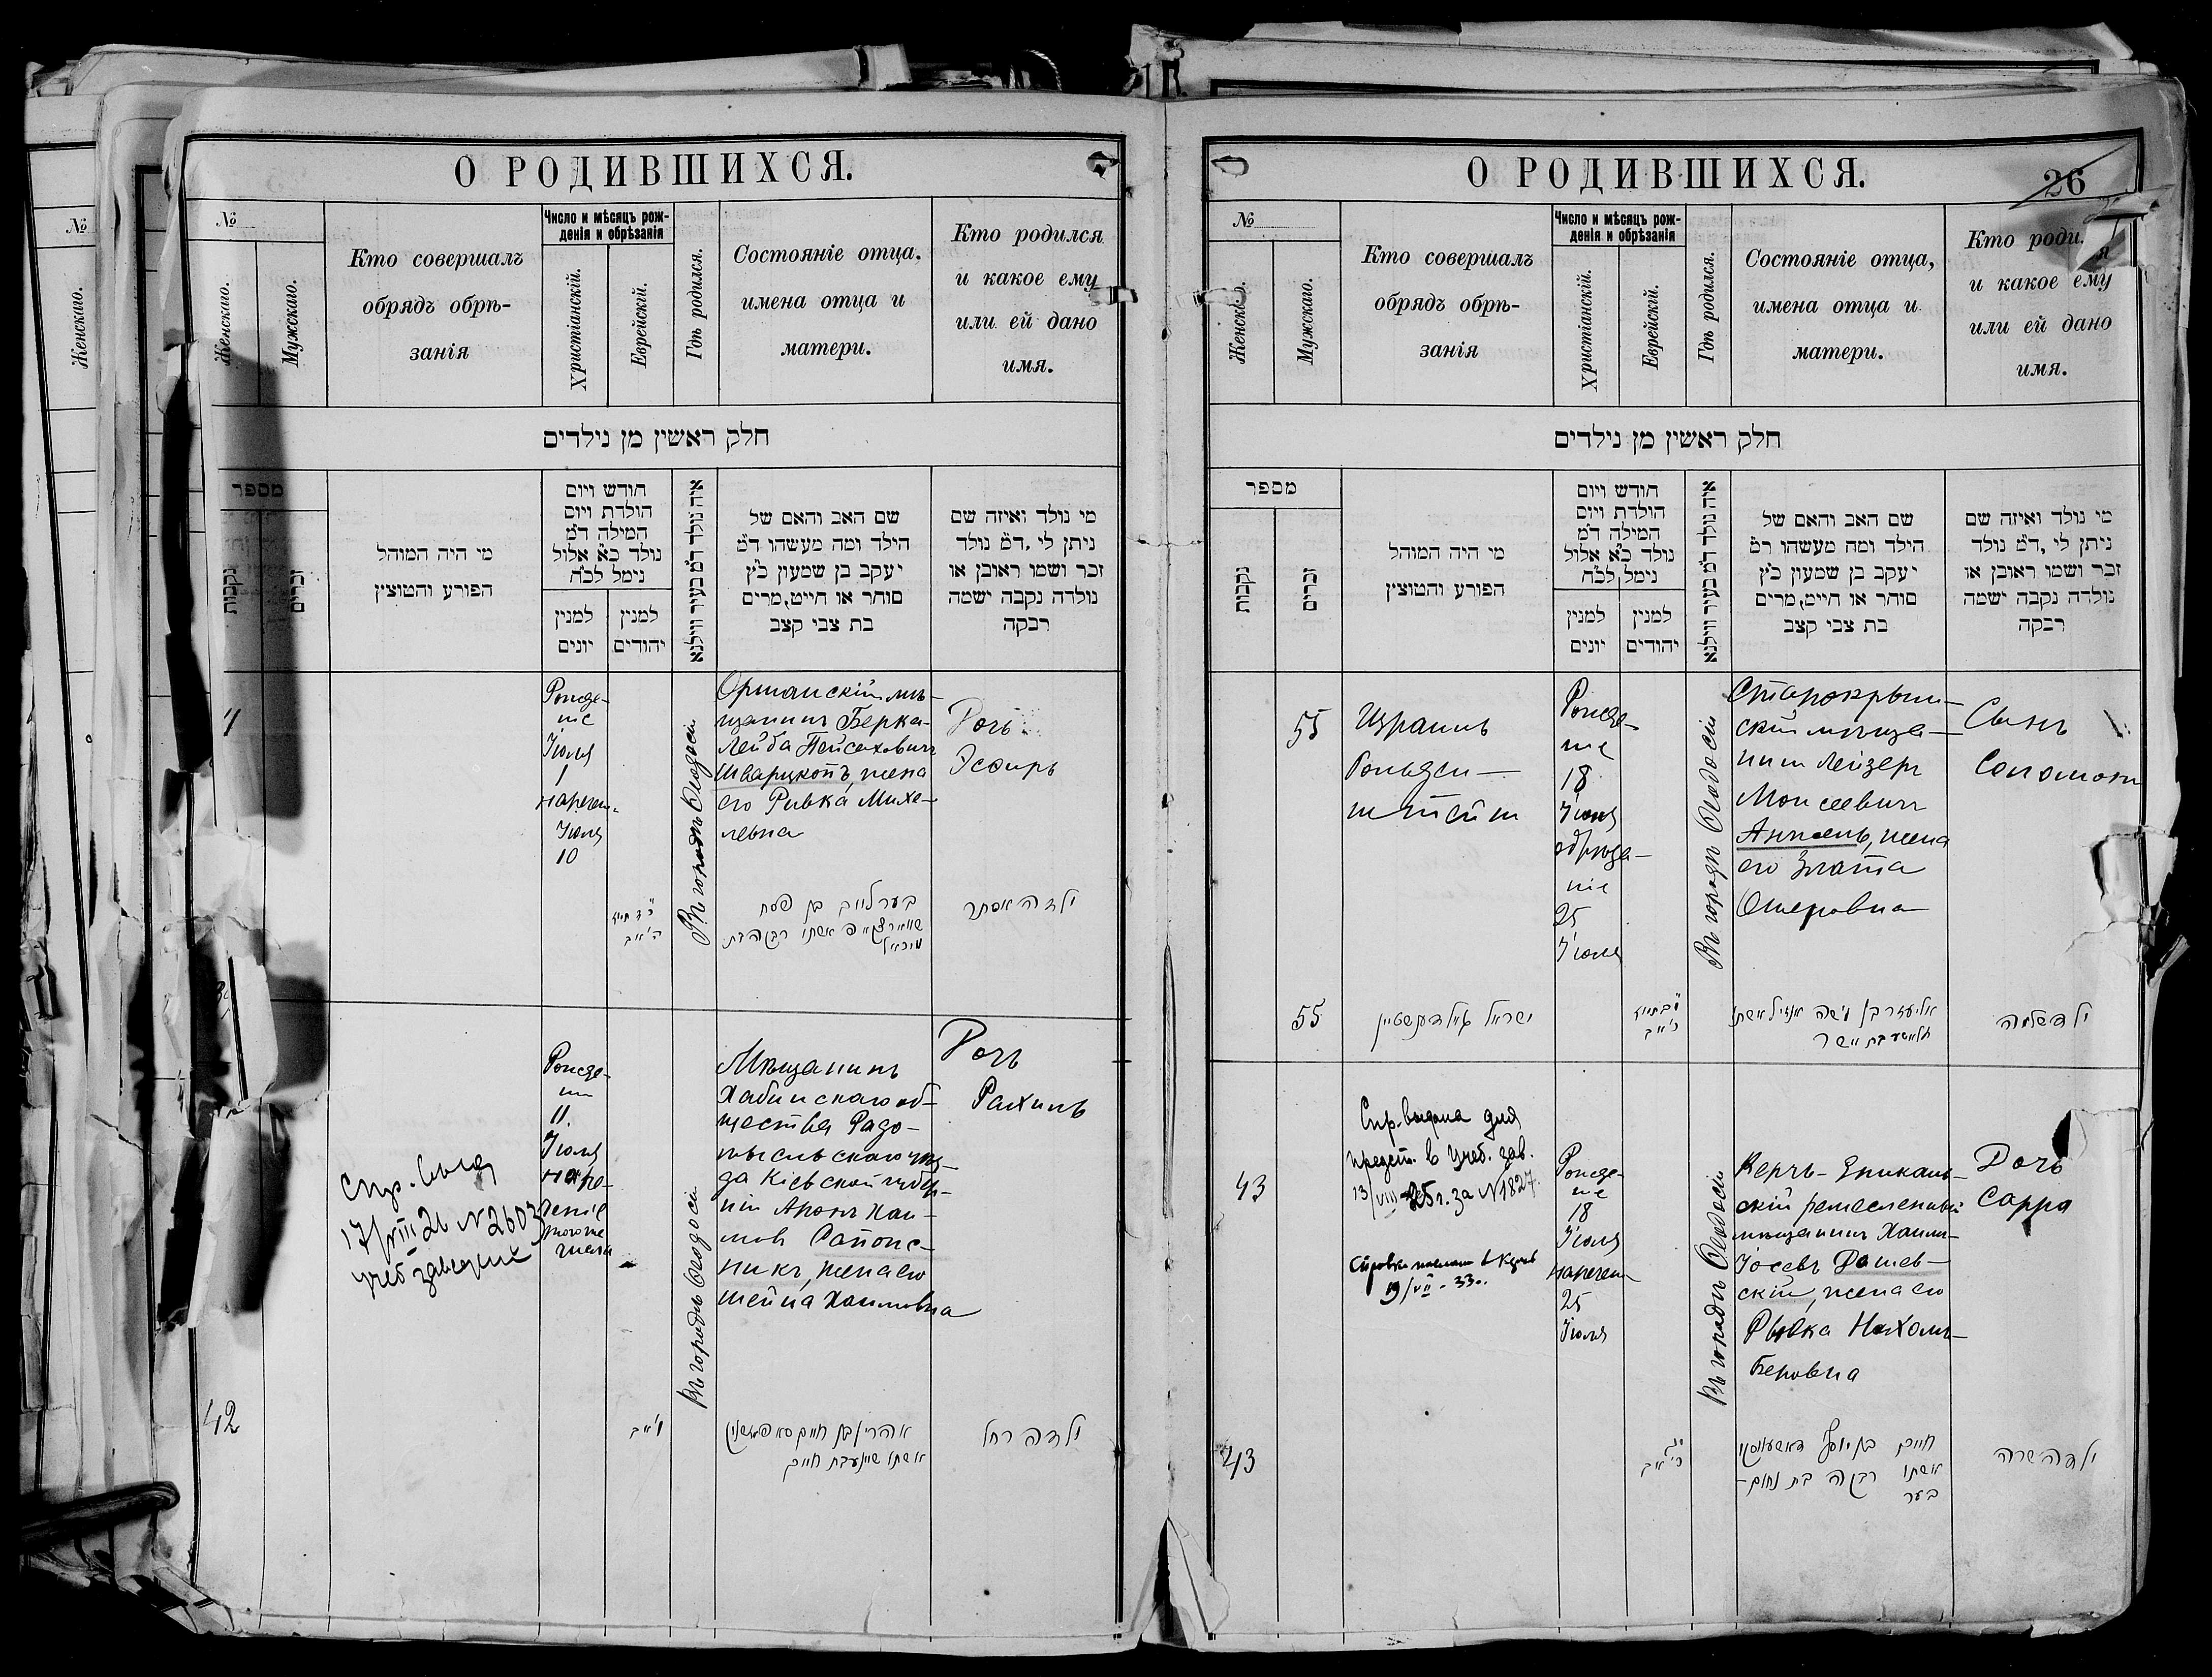 №
Женскаго.
О РОДИВШИХСЯ.
№
Женскаго.
Мужскаго.
Кто совершалъ
обрядъ обрѣ-
занія
Число и мѣсяцъ рож-
денія и обрѣзанія
Христіанскій.
Еврейскій.
Гдѣ родился.
Состояніе отца,
имена отца и
матери.
Кто родился
и какое ему
или ей дано
имя.
חלק ראשין מן נילדים
מספר
נקבות
זכרים
מי היה המוהל
הפורע והמוצץ
חודש ויום
הולדת ויום
המילה ד״מ
נולד כ״א אלול
נימל לכ״ח
למנין
יונים
למנין
יהודים
איה נולד ד״מ בעיר ווילנא
שם האב והאם של
הילד ומה מעשהו ד״מ
יעקב בן שמעון כ״ץ
סוחר או חייט, מרים
בת צבי קצב
מי נולד ואיזה שם
ניתן לי, ד״מ נולד
זכר ושמו ראובן או
נולדה נקבה ישמה
רבקה
Рожде-
ніе
Іюля
1
нарече-
Іюля
10
Въ городѣ Ѳеодосіи
Оршанскій мѣ-
щанинъ Берка-
Лейба Пейсаховичъ
Шварцкопъ, жена
его Ривка Михе-
левна
Дочь
Эсѳирь
בער לייב בן פסח
אשתו רבקה בת
ילדה אסתר
42
Спр. выд
17/VIII 26 № 2603
учеб заведение
Рожде-
ніе
11.
Іюля
наре-
ченіе
Въ городѣ Ѳеодосіи
Мѣщанинъ
Хабинскаго об-
щества Радо-
мысльскаго уѣз-
да Кіевской губер-
ніи Аронъ Хаи-
мовъ Сапож-
никъ, жена его
Шейна Хаимовна
Дочь
Рахиль
ו׳ אב
אהרן בן חיים
אשתו שיינע בת חיים
ילדה רחל
О РОДИВШИХСЯ.
26
№
Женскаго.
Мужскаго.
Кто совершалъ
обрядъ обрѣ-
занія
Число и мѣсяцъ рож-
денія и обрѣзанія
Христіанскій.
Еврейскій.
Гдѣ родился.
Состояніе отца,
имена отца и
матери.
Кто роди
я
и какое ему
или ей дано
имя.
חלק ראשין מן נילדים
מספר
נקבות
זכרים
מי היה המוהל
הפורע והמוצץ
חודש ויום
הולדת ויום
המילה ד״מ
נולד כ״א אלול
נימל לכ״ח
למנין
יונים
למנין
יהודים
איה נולד ד״מ בעיר ווילנא
שם האב והאם של
הילד ומה מעשהו ד״מ
יעקב בן שמעון כ״ץ
סוחר או חייט, מרים
בת צבי קצב
מי נולד ואיזה שם
ניתן לי, ד״מ נולד
זכר ושמו ראובן או
נולדה נקבה ישמה
רבקה
55
Израиль
Гольден-
штейн
Рожде-
ніе
18
Іюля
обрѣза-
ніе
25
Іюля
Въ городѣ Ѳеодосіи
Старокрым-
скій мѣща-
нинъ Лейзеръ
Моисеевичъ
Анжель, жена
его Злата
Ошеровна
Сынъ
Соломонъ
55
ישראל גאלדענשטיין
אליעזר בן משה אנזיל אשתו
זלאטע בת אשר
ילד שלמה
43
Спр. выдана для
предст. в учеб. зав.
13/VIII-25 г. за № 1827.
Справка послана в Керчь
19/VII-33 г.
Рожде-
ніе
18
Іюля
нарече-
25
Іюля
Въ городѣ Ѳеодосіи
Керчь-Еникаль-
скій ремесленный
мѣщанинъ Хаимъ-
Іосевъ Дашев-
скій, жена его
Рывка Нахомъ-
Беровна
Дочь
Сарра
43
חיים בן יוסף דאשעווסקי
אשתו רבקה בת נחום-
בער
ילדה שרה